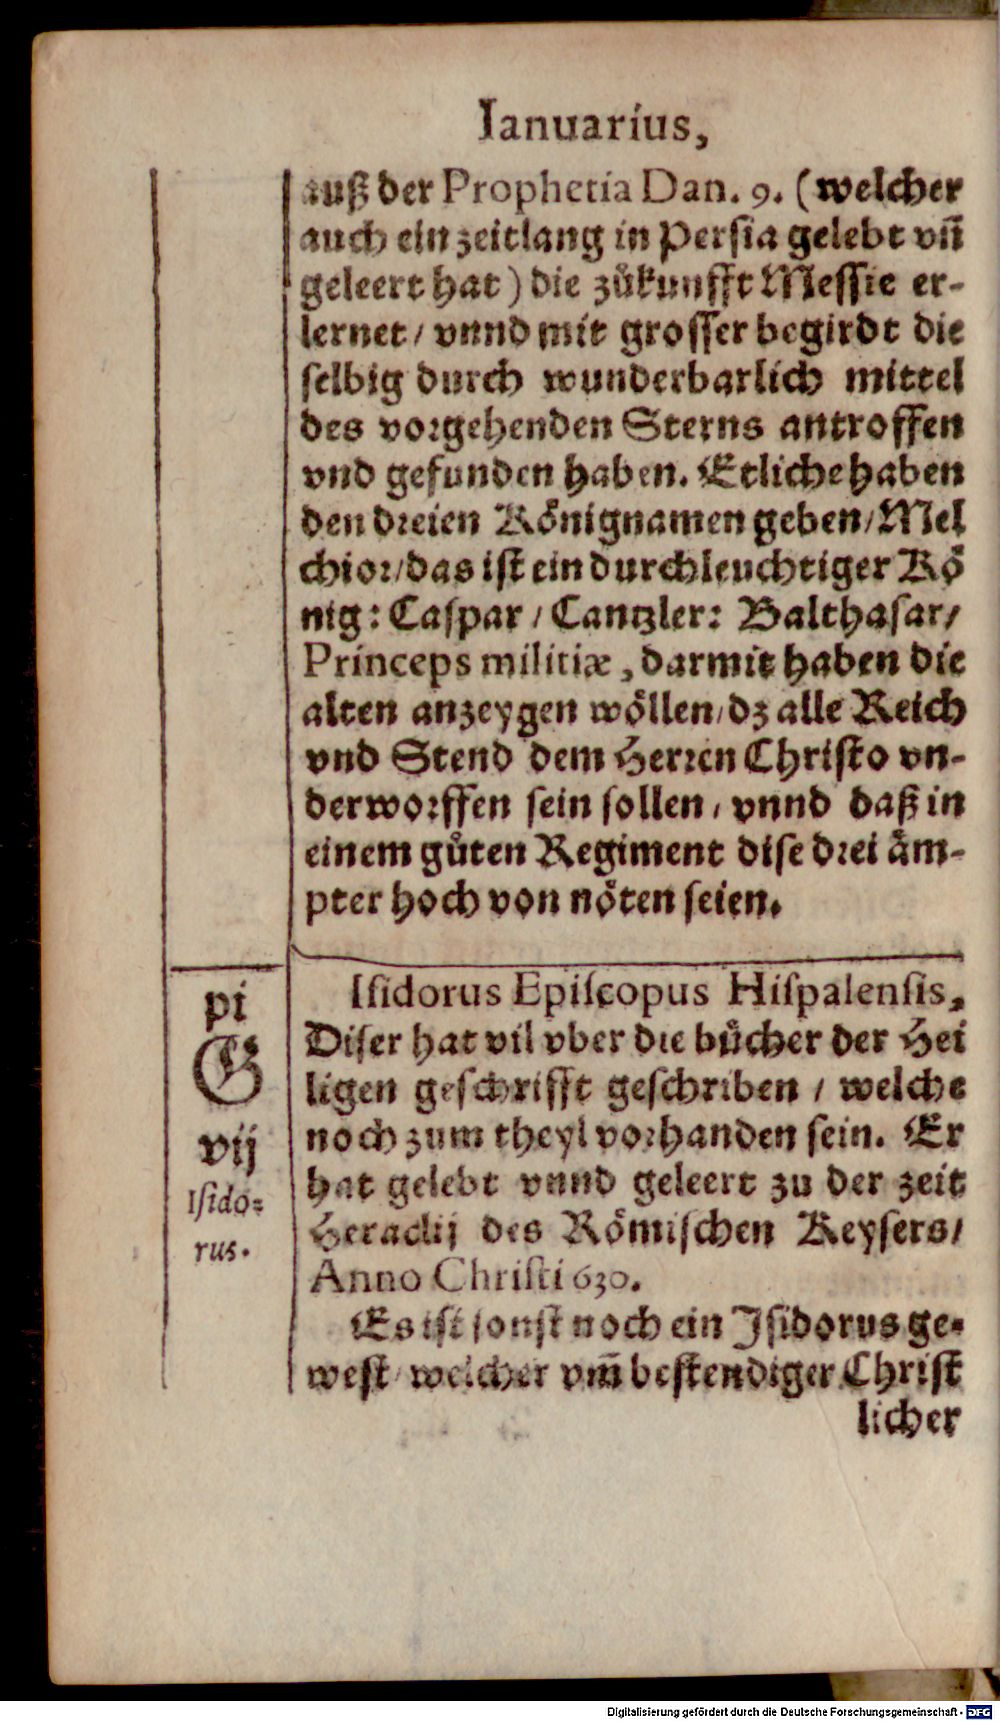 Ianuarius,
auß der Prophetia Dan. 9. (welcher
auch ein zeitlang in Persia gelebt vñ
geleert hat) die zůkunfft Messie er-
lernet / vnnd mit grosser begirdt die
selbig durch wunderbarlich mittel
des vorgehenden Sterns antroffen
vnd gefunden haben. Etliche haben
den dreien Könignamen geben / Mel
chior / das ist ein durchleuchtiger Kö
nig: Caspar / Cantzler: Balthasar /
Princeps militiæ, darmit haben die
alten anzeygen wöllen / dz alle Reich
vnd Stend dem Herren Christo vn-
derworffen sein sollen / vnnd daß in
einem gůten Regiment dise drei äm-
pter hoch von nöten seien.
pi
G
vij
Isido-
rus.
Isidorus Episcopus Hispalensis,
Diser hat vil vber die bůcher der Hei
ligen geschrifft geschriben / welche
noch zum theyl vorhanden sein. Er
hat gelebt vnnd geleert zu der zeit
Heraclij des Römischen Keysers /
Anno Christi 630.
Es ist sonst noch ein Isidorus ge-
west / welcher vm̃ bestendiger Christ
licher
Digitalisierung gefördert durch die Deutsche Forschungsgemeinschaft - DFG